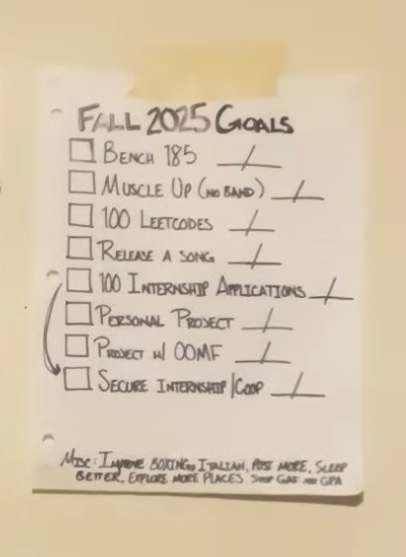 FALL 2025 GOALS
BENCH 185 /
MUSCLE UP (NO BAND) /
100 LEETCODES /
RELEASE A SONG /
100 INTERNSHIP APPLICATIONS /
PERSONAL PROJECT /
PROJECT W/ OOMF /
SECURE INTERNSHIP/COOP /
MISC: IMPROVE BOXING, ITALIAN, POST MORE, SLEEP
BETTER, EXPLORE MORE PLACES. GPA